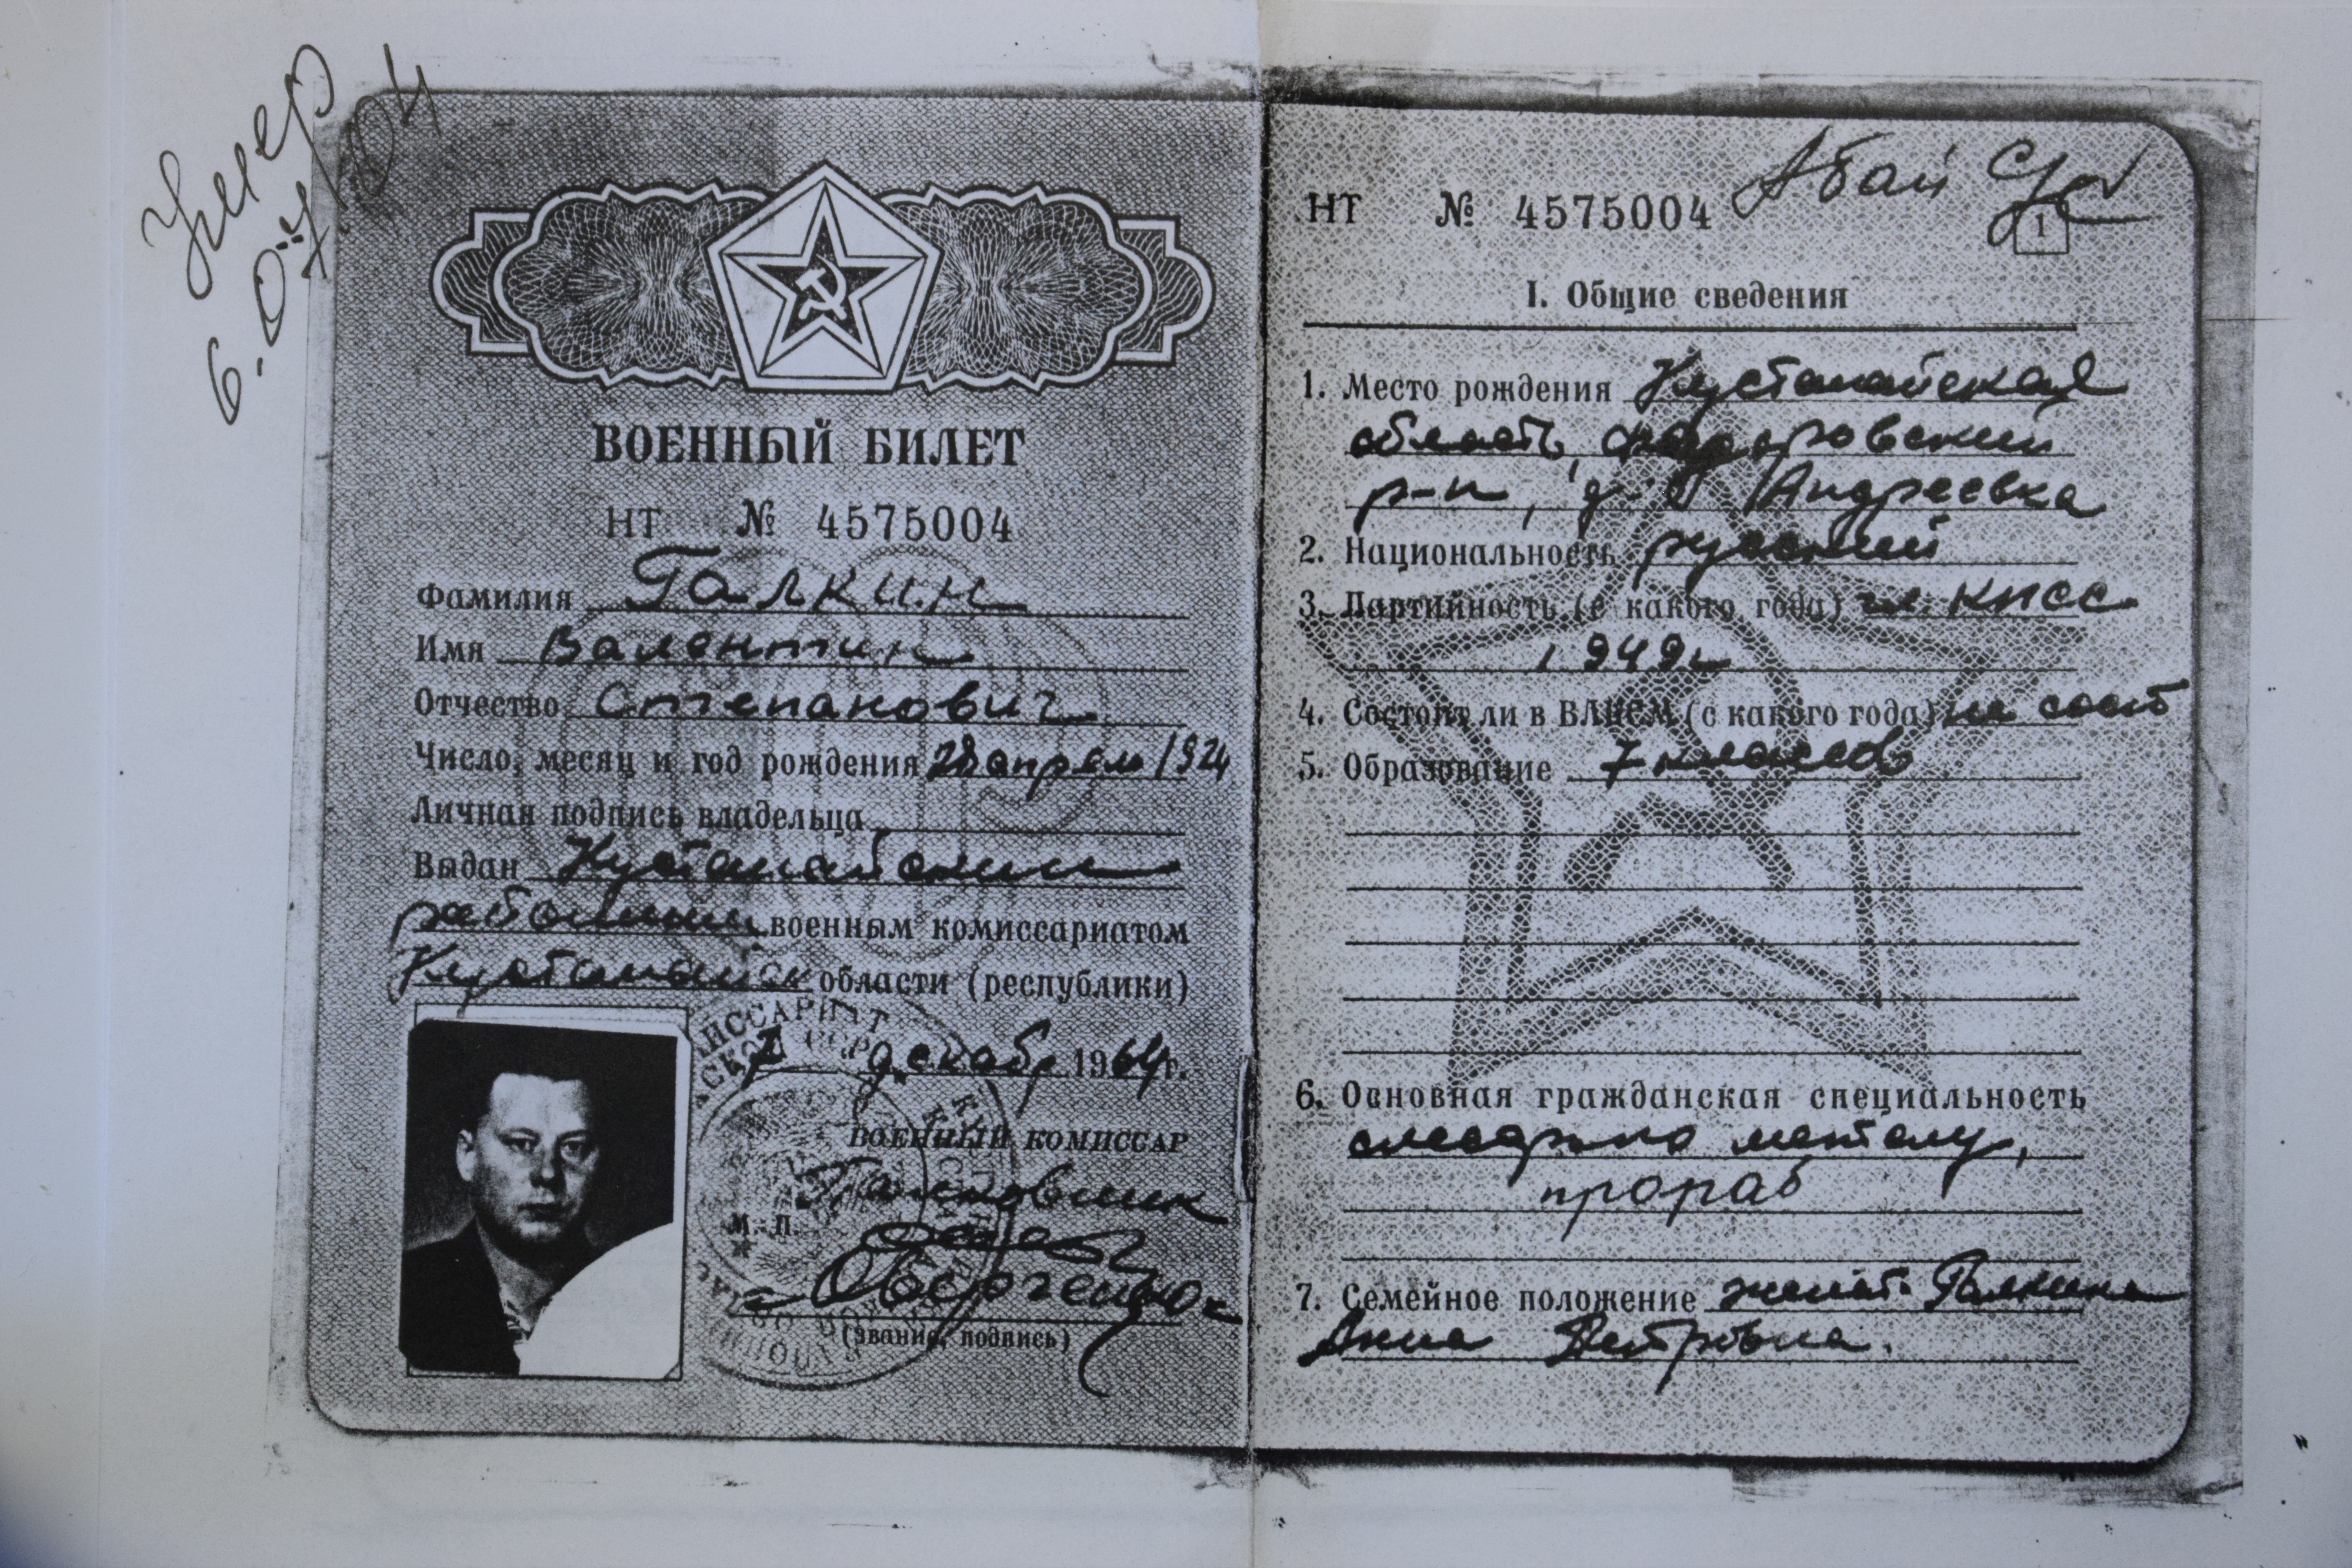 Умер
ВОЕННЫЙ БИЛЕТ
НТ № 4575004
Фамилия Галкин
Имя Валентин
Отчество Степанович
Число, месяц и год рождения 28 апреля 1924
Личная подпись владельца
Выдан Кустанайским
районным военным комиссариатом
Кустанайск области (республики)
7 декабр 1964 г.
ВОЕННЫЙ КОМИССАР
М. П.
(звание, подпись)
НТ № 4575004 Абай
1
I. Общие сведения
1. Место рождения Кустанайская
область, федоровский
р-н, д. Андреевка
2. Национальность русский
3. Партийность (с какого года) чл. КПСС
1949г
4. Состоит ли в ВЛКСМ (с какого года) не сост
5. Образование 7 классов
6. Основная гражданская специальность
слесарь по металу,
прораб
7. Семейное положение женат. Галкина
Анна Петровна.